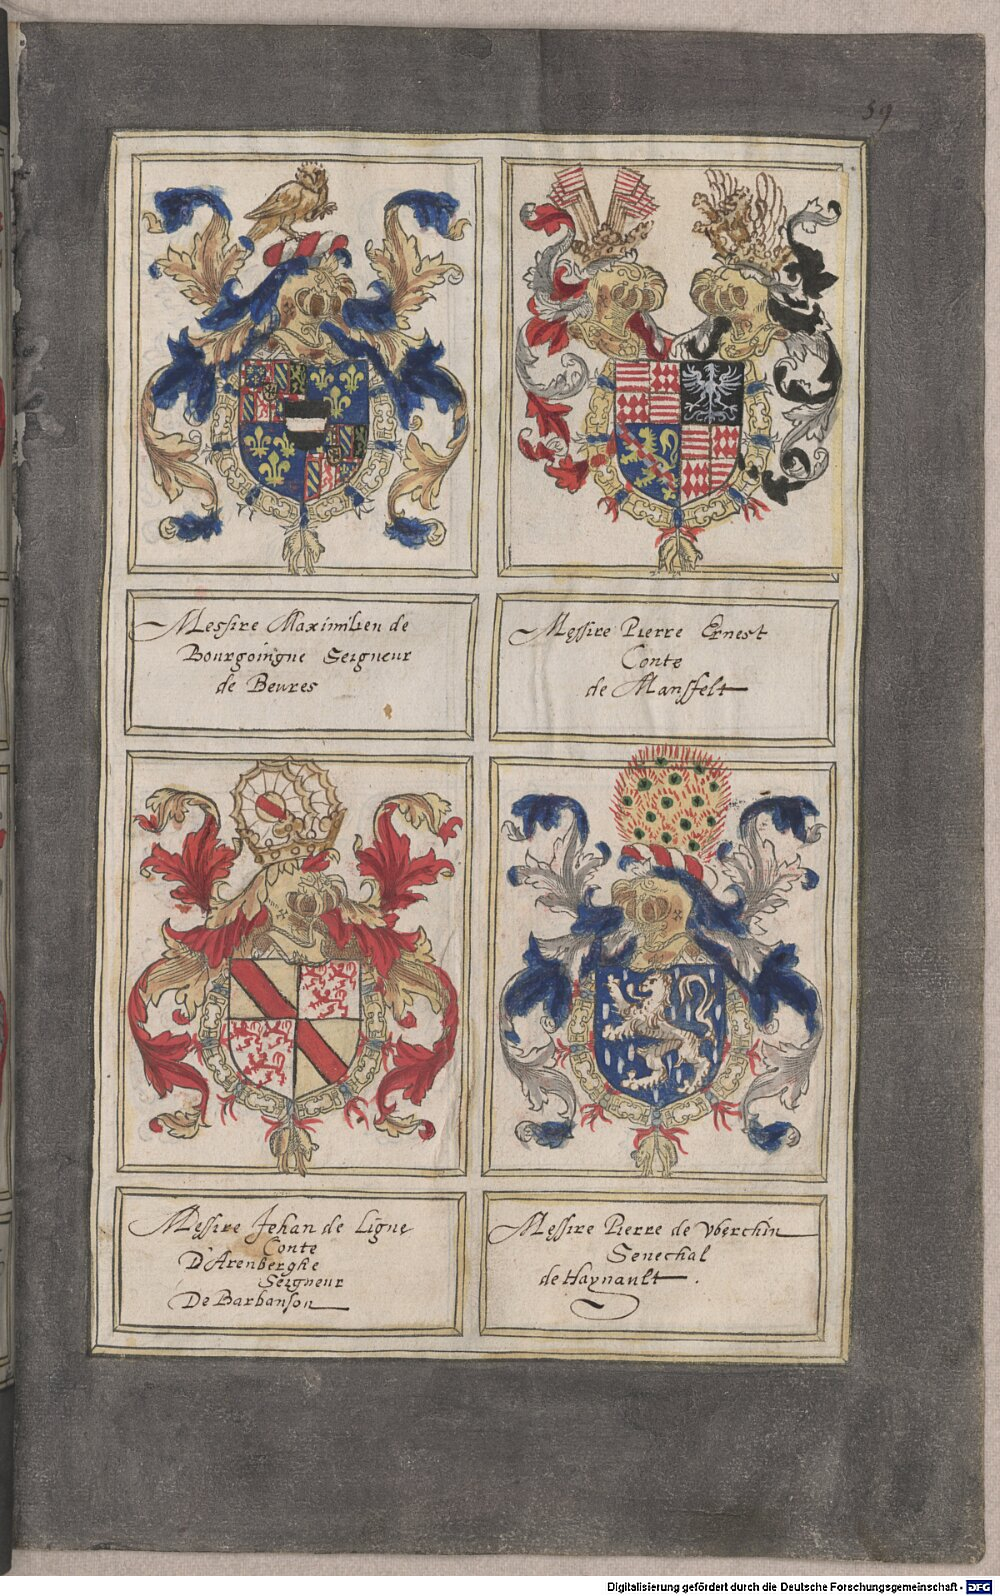 59
Messire Maximilien de
Bourgoingne Seigneur
de Beures
Messire Pierre Ernest
Conte
de Mansfelt
Messire Jehan de Ligne
Conte
D'Arenberghe
Seigneur
De Barbanson
Messire Pierre de Vberchin
Senechal
de Haynault.
Digitalisierung gefördert durch die Deutsche Forschungsgemeinschaft - DFG